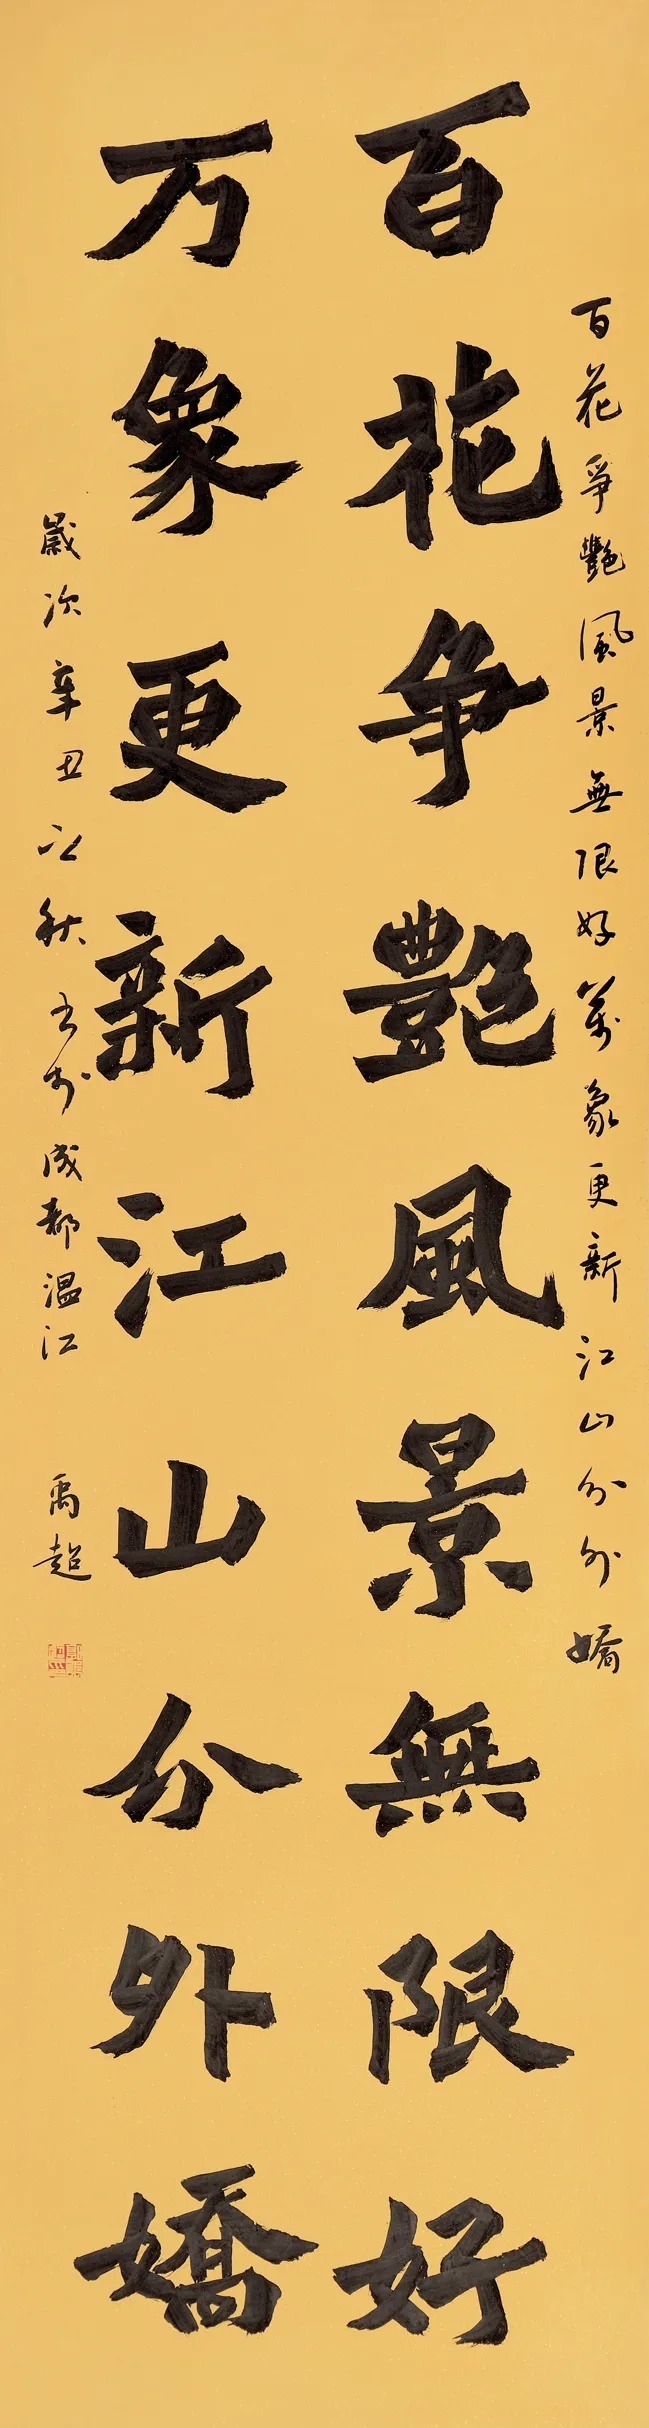 百花爭艷風景無限好萬象更新江山分外嬌
百花争艶風景無限好
万象更新江山分外嬌
歲次辛丑秋書於成都温江 禹超